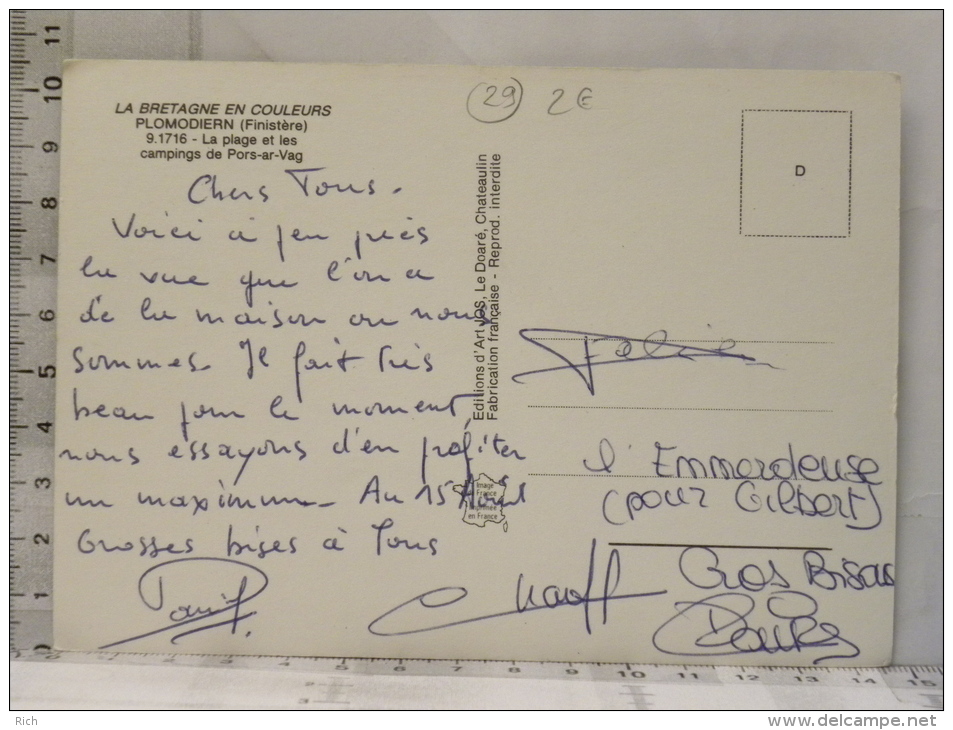 29 2€
LA BRETAGNE EN COULEURS
PLOMODIERN (Finistère)
9.1716 - La plage et les
campings de Pors-ar-Vag
D
Chers Tous.
Voici à peu près
la vue que l'on a
de la maison où nous
sommes. Il fait très
beau pour le moment
nous essayons d'en profiter
un maximum. Au 15 Août
Grosses bises à Tous
Editions d'Art JOS, Le Doaré, Chateaulin
Fabrication française - Reprod. interdite
Image
France
Imprimée
en France
l'Emmerdeuse
(pour Gilbert)
Gros Bisous
11
10
9
8
7
6
5
4
3
2
1
0
0 1 2 3 4 5 6 7 8 9 10 11 12 13 14 15
Rich
delcampe.net